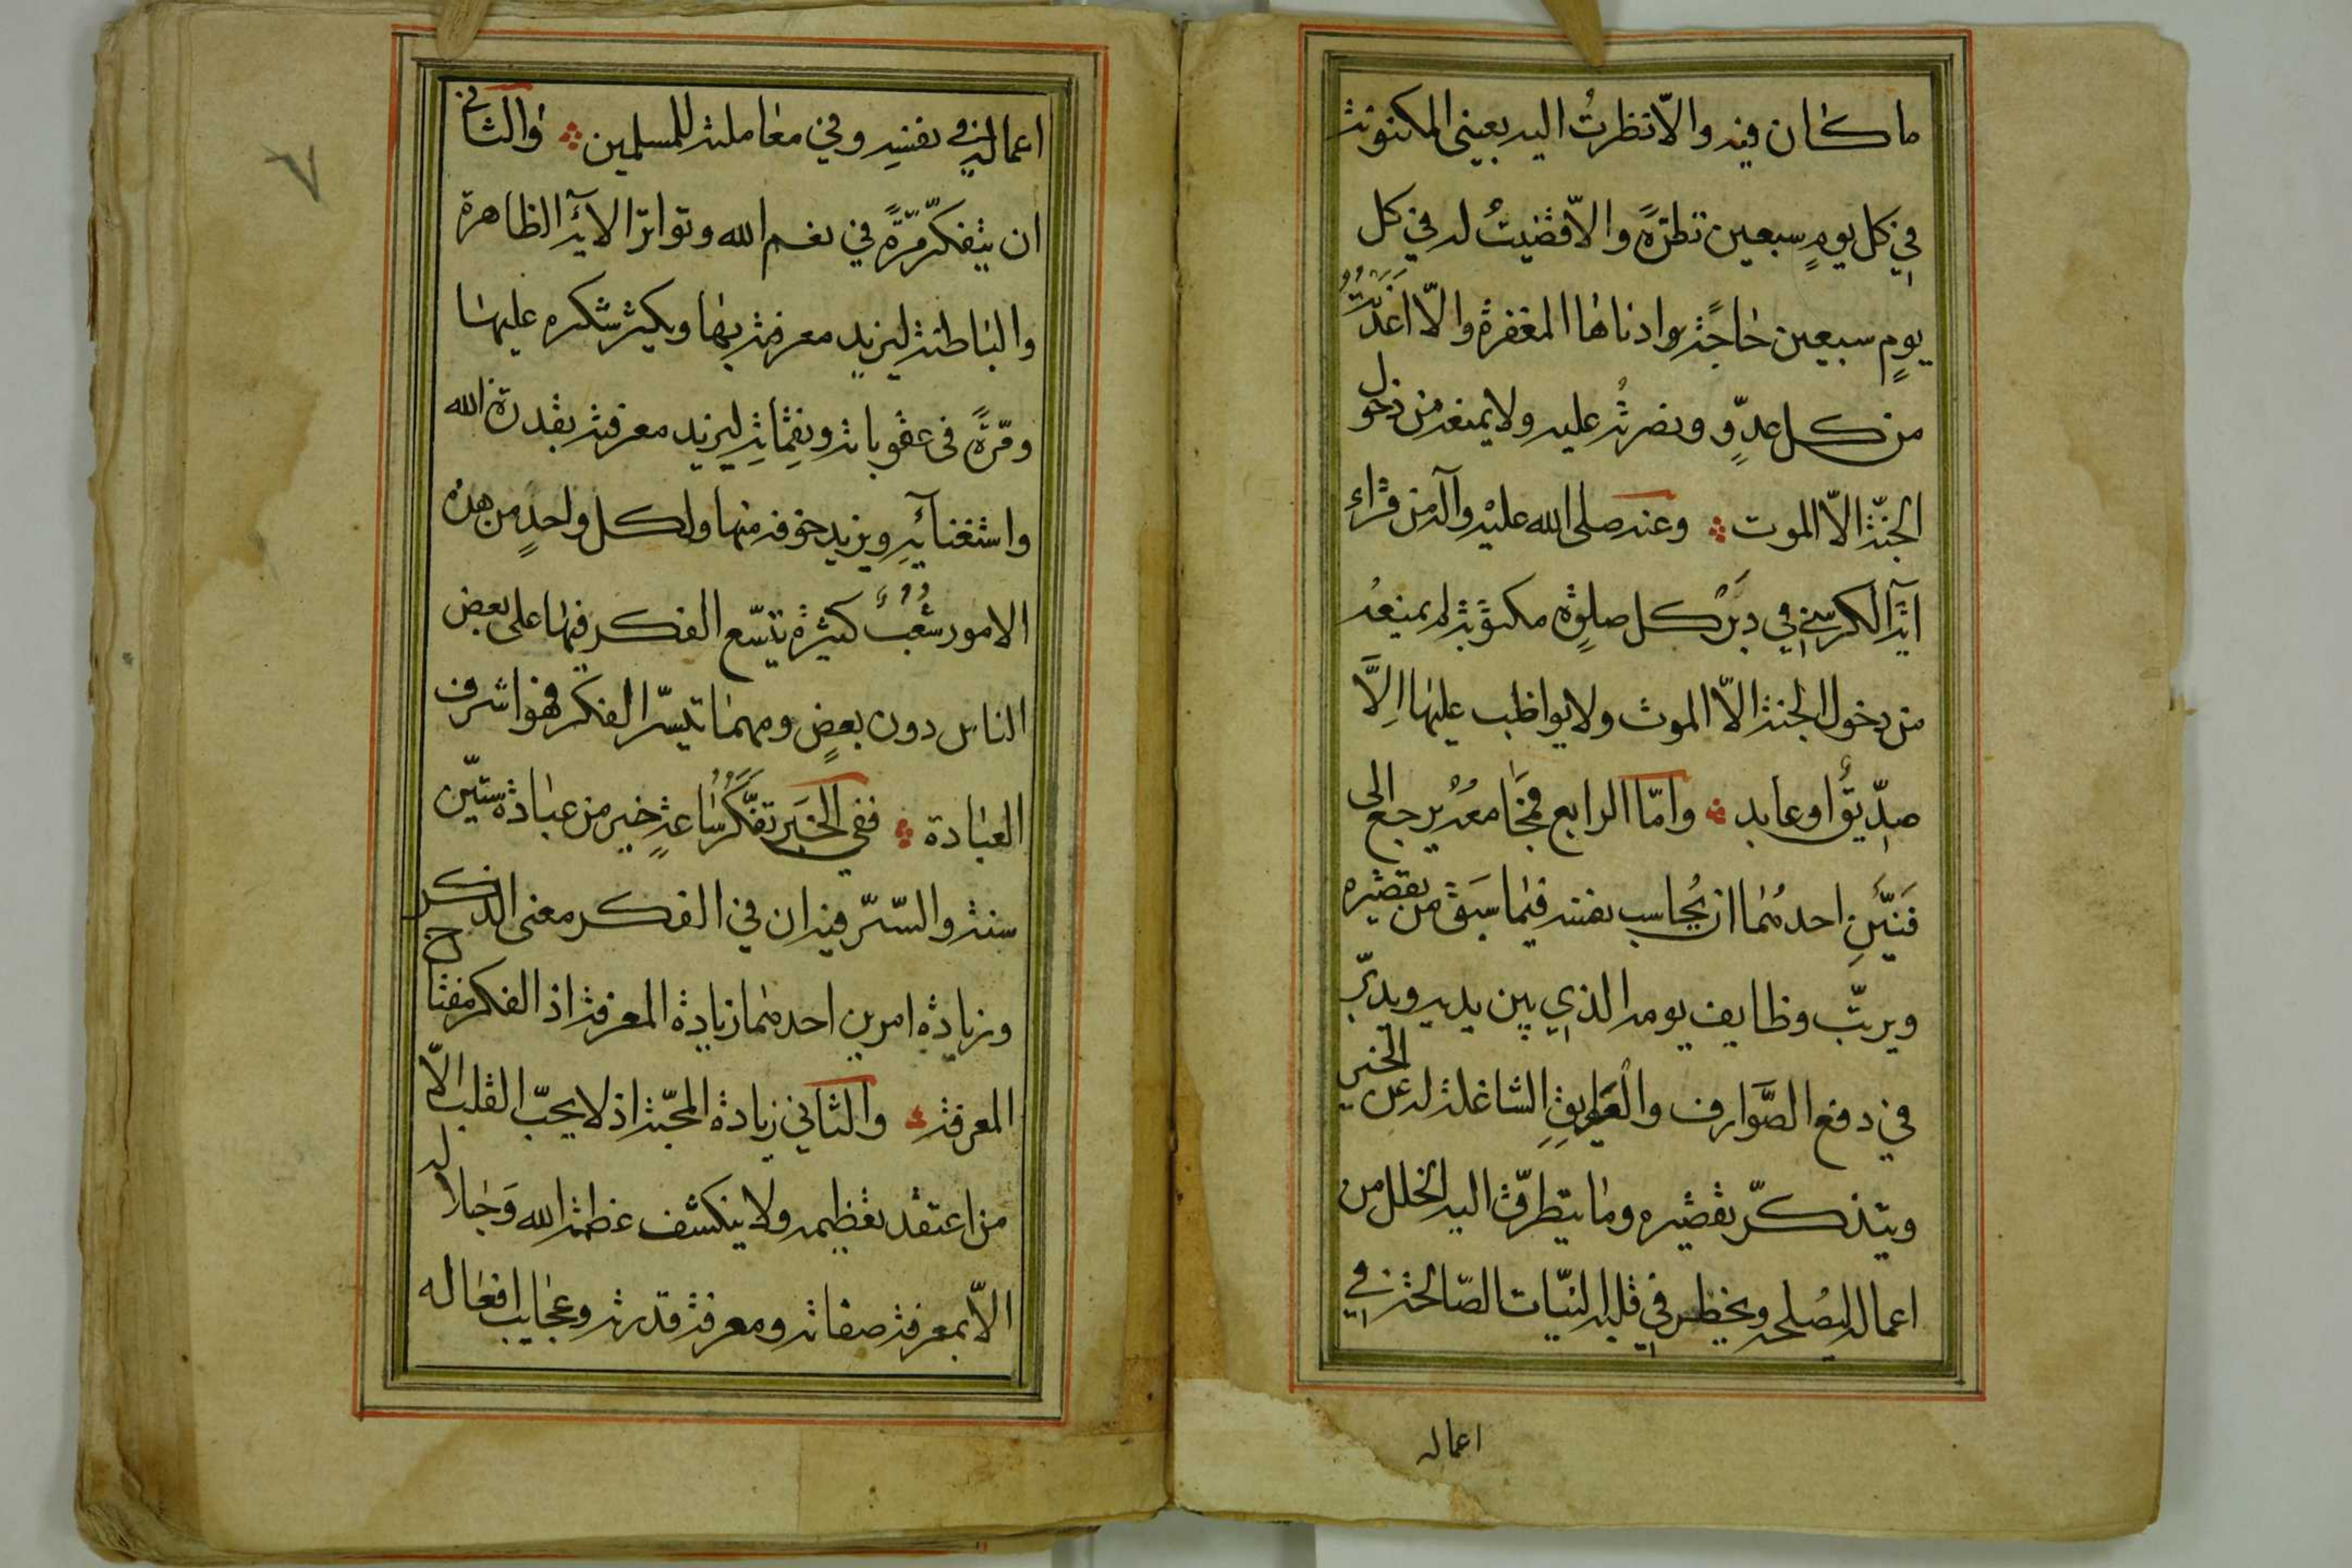 ما كان فيه والّا نظرتُ اليه بعيني المكنونة
في كل يومٍ سبعين نظرةً والّا قضيتُ له في كل
يومٍ سبعين حاجةً وادناها المغفرة والّا اعَذتُهُ
من كل عدوٍّ ونصرته عليه ولا يمنعه من دخول
الجنّة الّا الموت وعنه صلى الله عليه وآله من قراء
آية الكرسي في دبر كل صلوةٍ مكتوبة لم يمنعهُ
من دخول الجنة الّا الموت ولا يواظب عليها اِلَّا
صِدّيقٌ او عابد وامّا الرابع فجَامعهُ يرجع الى
فَنيّنِ احدهما ان يُحاسب نفسه فيما سَبَق من تقصيره
ويرتّب وظايف يومه الذي بين يديه ويدبّر
في دفع الصَّوارف والعَوايقِ الشاغلة له عن الخير
ويتذكّر تقصيره وما يتطرّق اليه الخلل من
اعماله ليصُلحه ويخطر في قلبه النيّات الصّالحة في
اعماله
٧
اعماله في نفسِه وفي معاملته للمسلمين والثاني
ان يتفكّر مرّةً في نعم الله وتواتر الآيه الظاهرة
والباطنة ليزيد معرفته بها ويكثر شكره عليها
ومرّةً فى عقوباته ونقِماتِه ليزيد معرفته بقدرة الله
واستغنآئِهِ ويزيد خوفه منها ولكل واحدٍ من هذه
الامور شُعَبٌ كثيرة يتسّع الفكر فيها على بعض
الناس دون بعضٍ ومهما تيسّر الفكر فهو اشرف
العبادة ففي الخَبَر تفكُّرُ ساعةٍ خير من عبادة ستّين
سنة والسّرّ فيه ان في الفكر معنى الذكر
وزيادة امرين احدهما زيادة المعرفة اذ الفكر مفتاح
المعرفة والثاني زيادة المحبّة اذ لا يحبّ القلب الّا
من اعتقد تعظيمه ولا ينكشف عظمة الله وَجلاله
الّا بمعرفة صفاته ومعرفة قدرته وعجايب افعاله